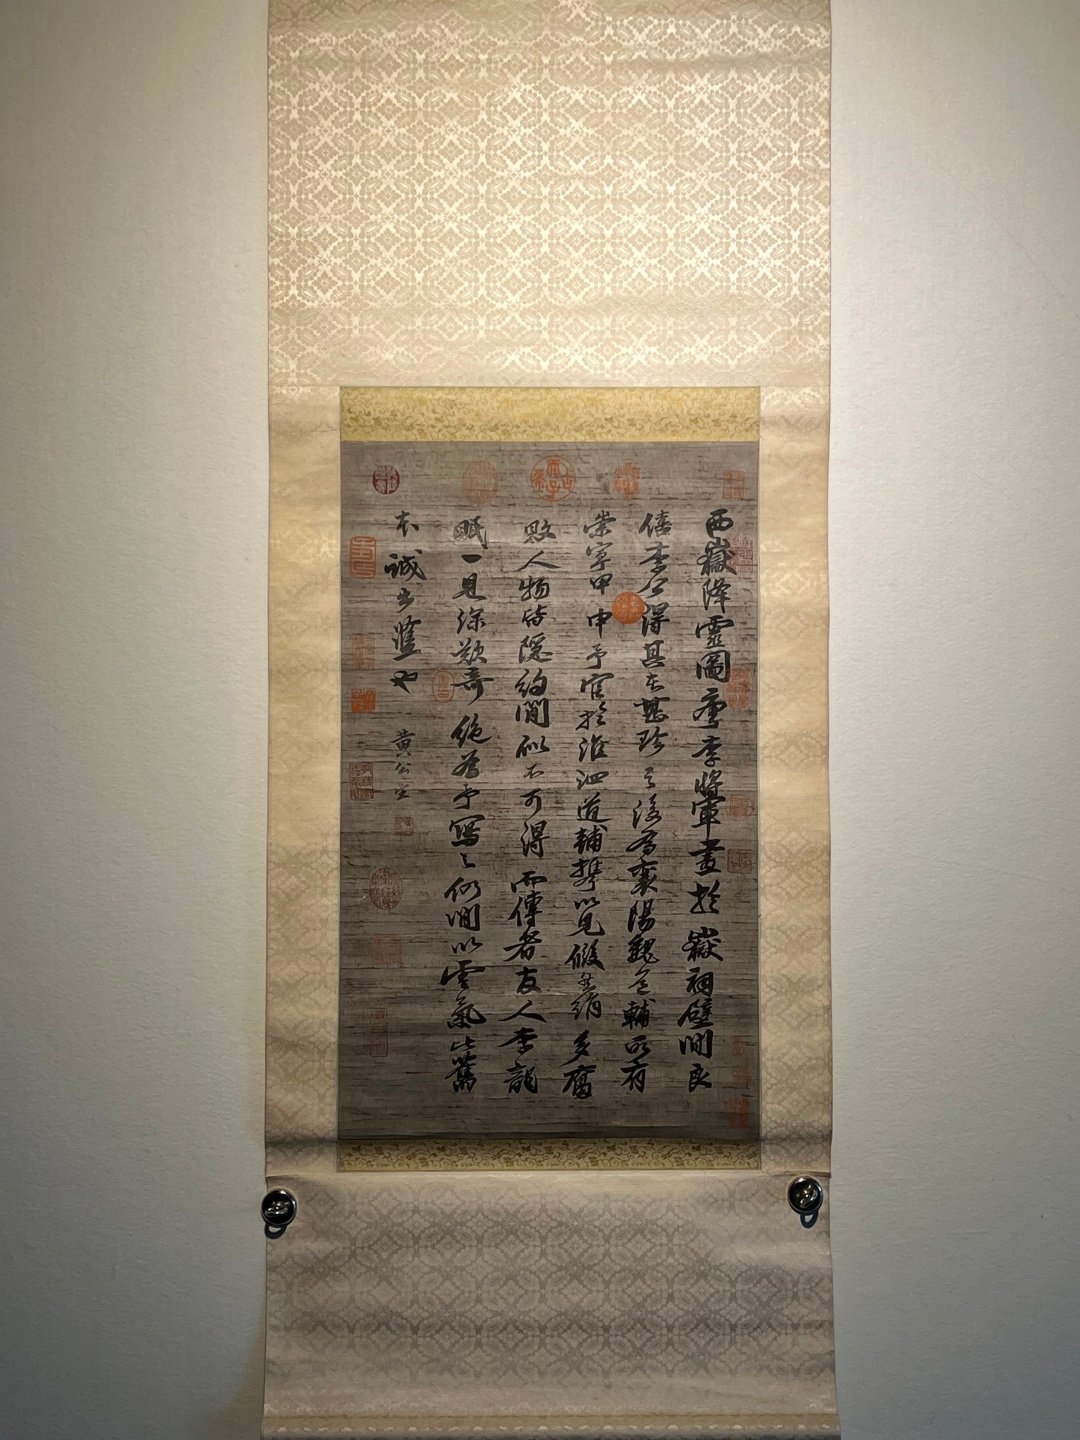 西嶽降靈圖唐李將軍畫於嶽祠壁間良
僖李公得其本甚珍之後為襄陽魏道輔所有
崇寧甲申予官於淮泗道輔攜以見假而絹多腐
敗人物皆隱約間似不可得而傳者友人李龍
眠一見深歎奇絕為予寫之仍間以雲氣比舊
本誠出藍也 黃公